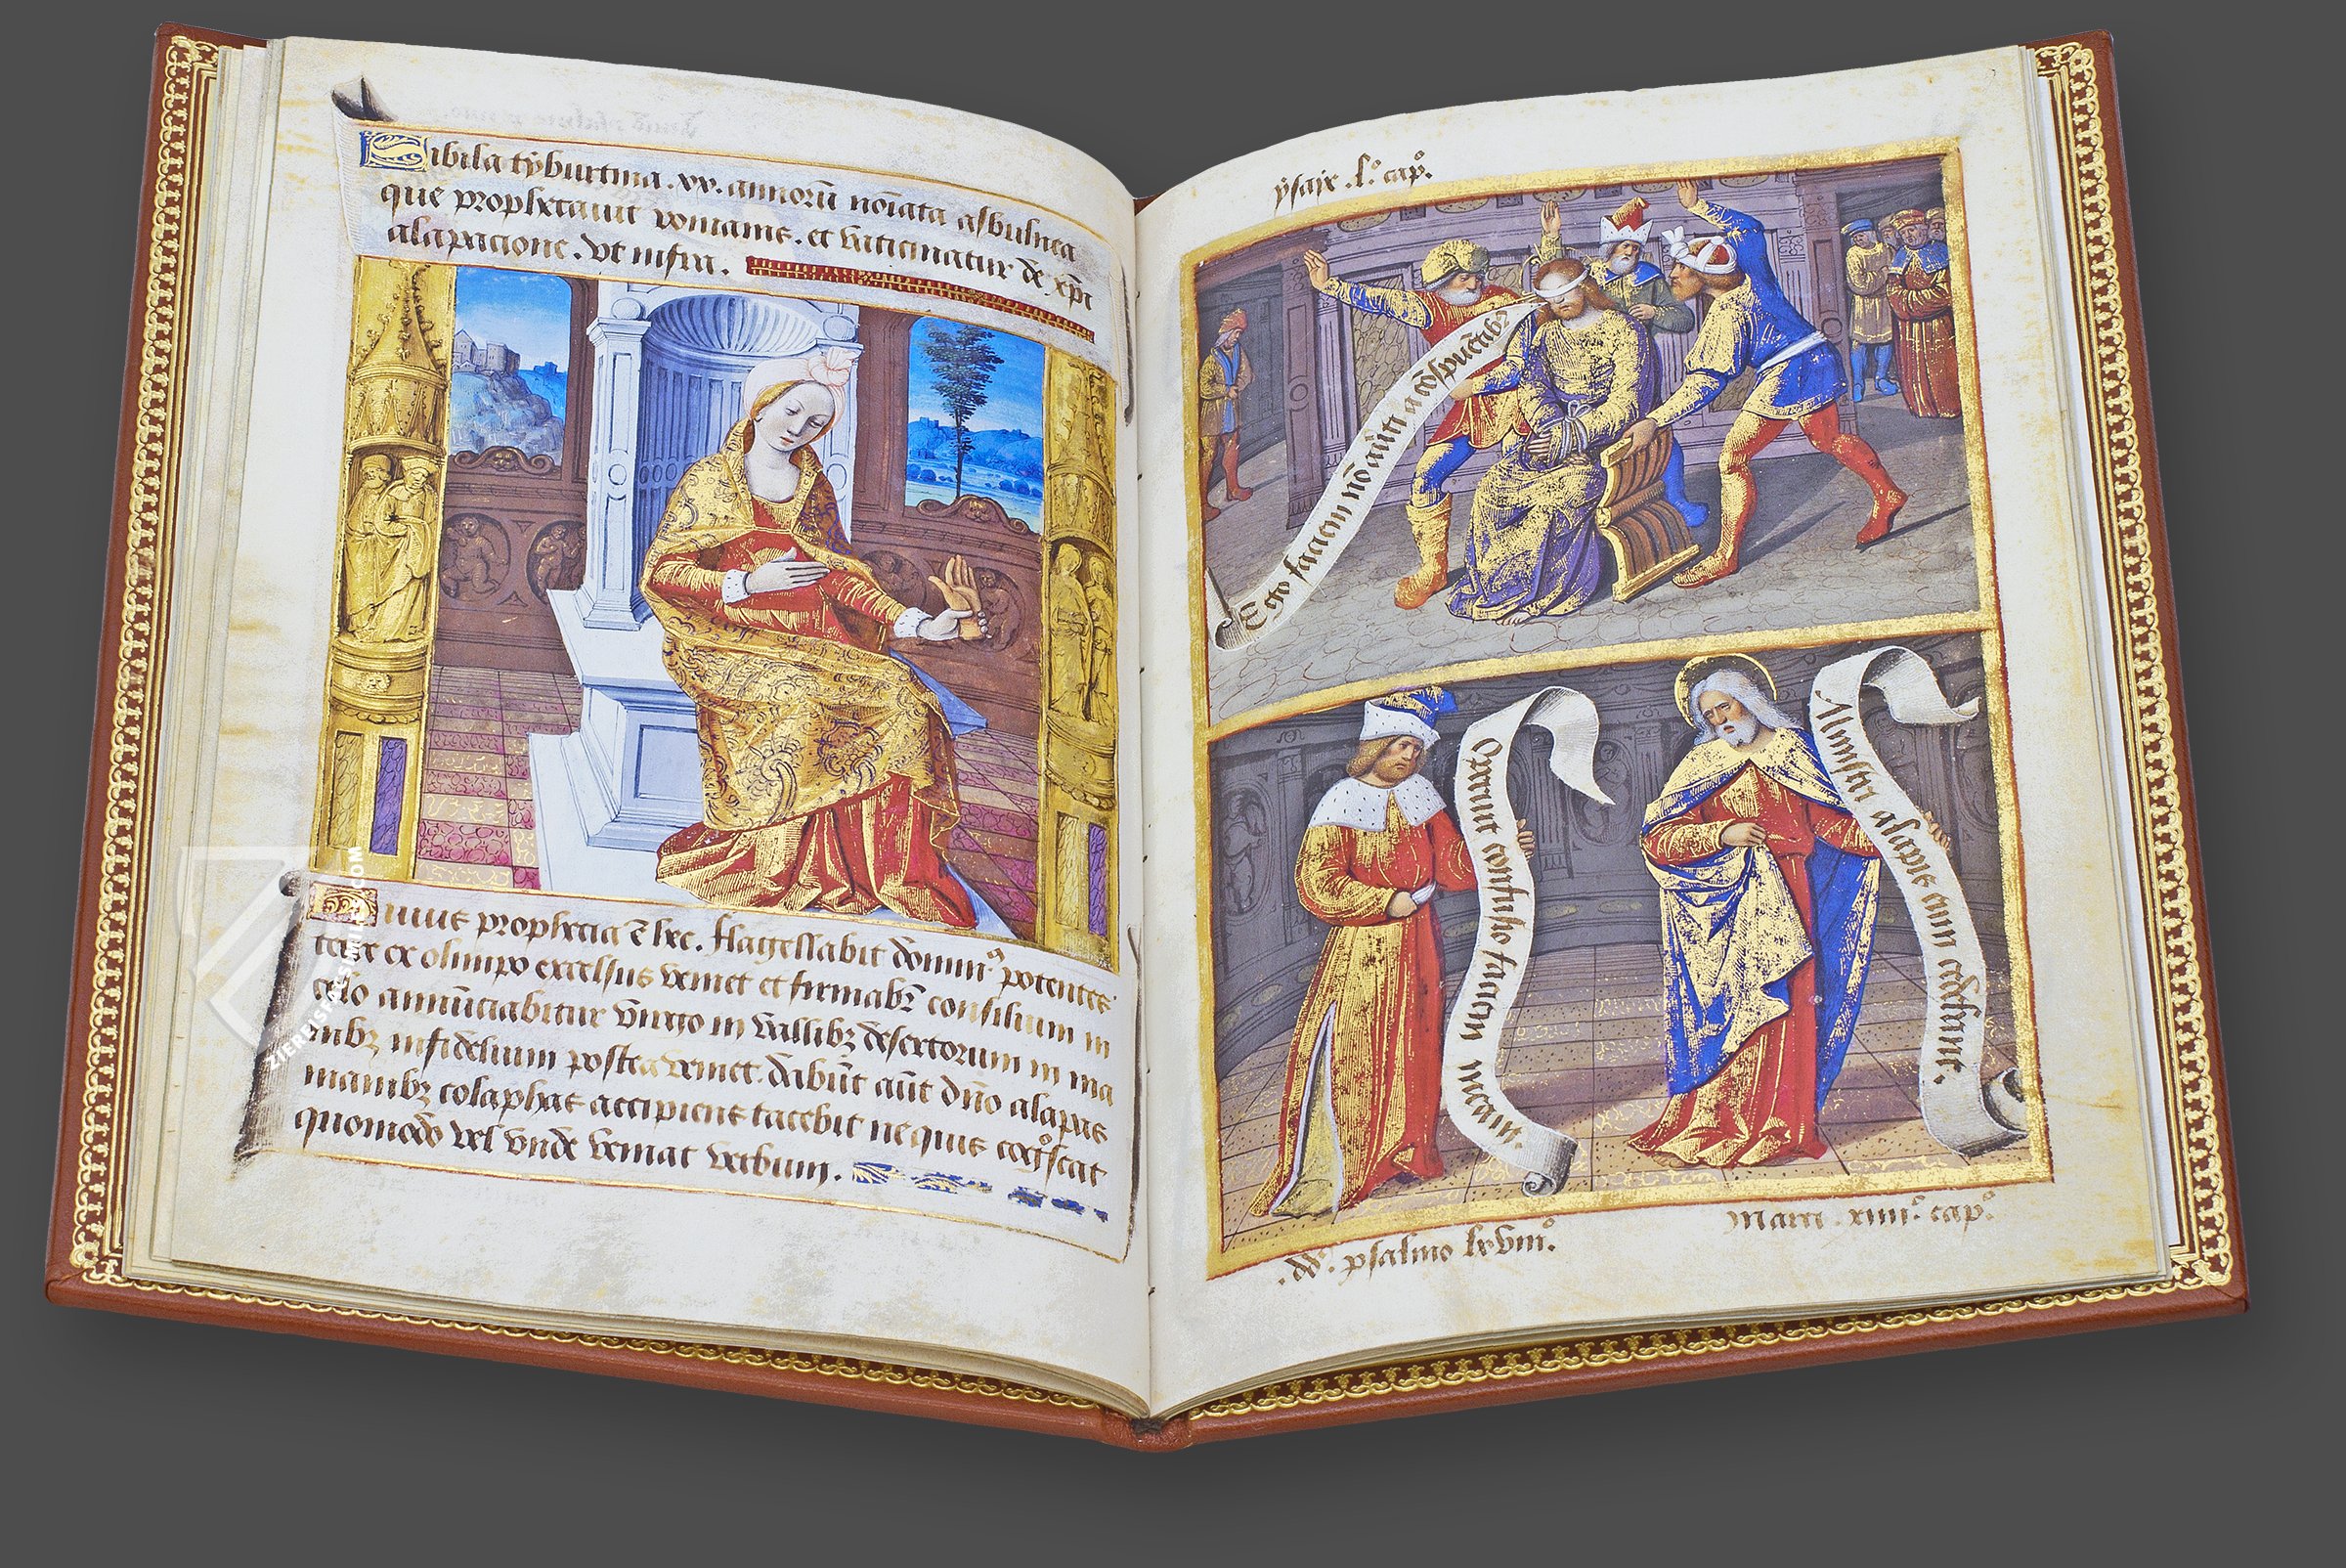 Sibila tyburtina .xv. annorũ noiãta asbulnea
que prophetauit romanis. et vaticinatur de xp̃i
alapacione. vt infra.
Huius prophetia ẽ hec. Flagellabit domin⁹ potentes
terre ex olimpo excelsus veniet et firmabr̃ consilium in
celo annũciabitur virgo in vallibꝫ desertorum in ma
nibꝫ infidelium postea veniet. dabũt aũt dño alapas
manibꝫ colaphas accipiens tacebit ne quis cog̃scat
quomodo vel vnde veniat verbum.
ysaie .l.º cap.º
Ego faciem nõ au̾ti a cõspuẽtibꝫ
Operuit confusio faciem meam.
Ministri alapis eum cedebant.
.dd̃. psalmo lxviii.º
Marci .xiiii.º cap.º
ZIEREIS FACSIMILES.COM